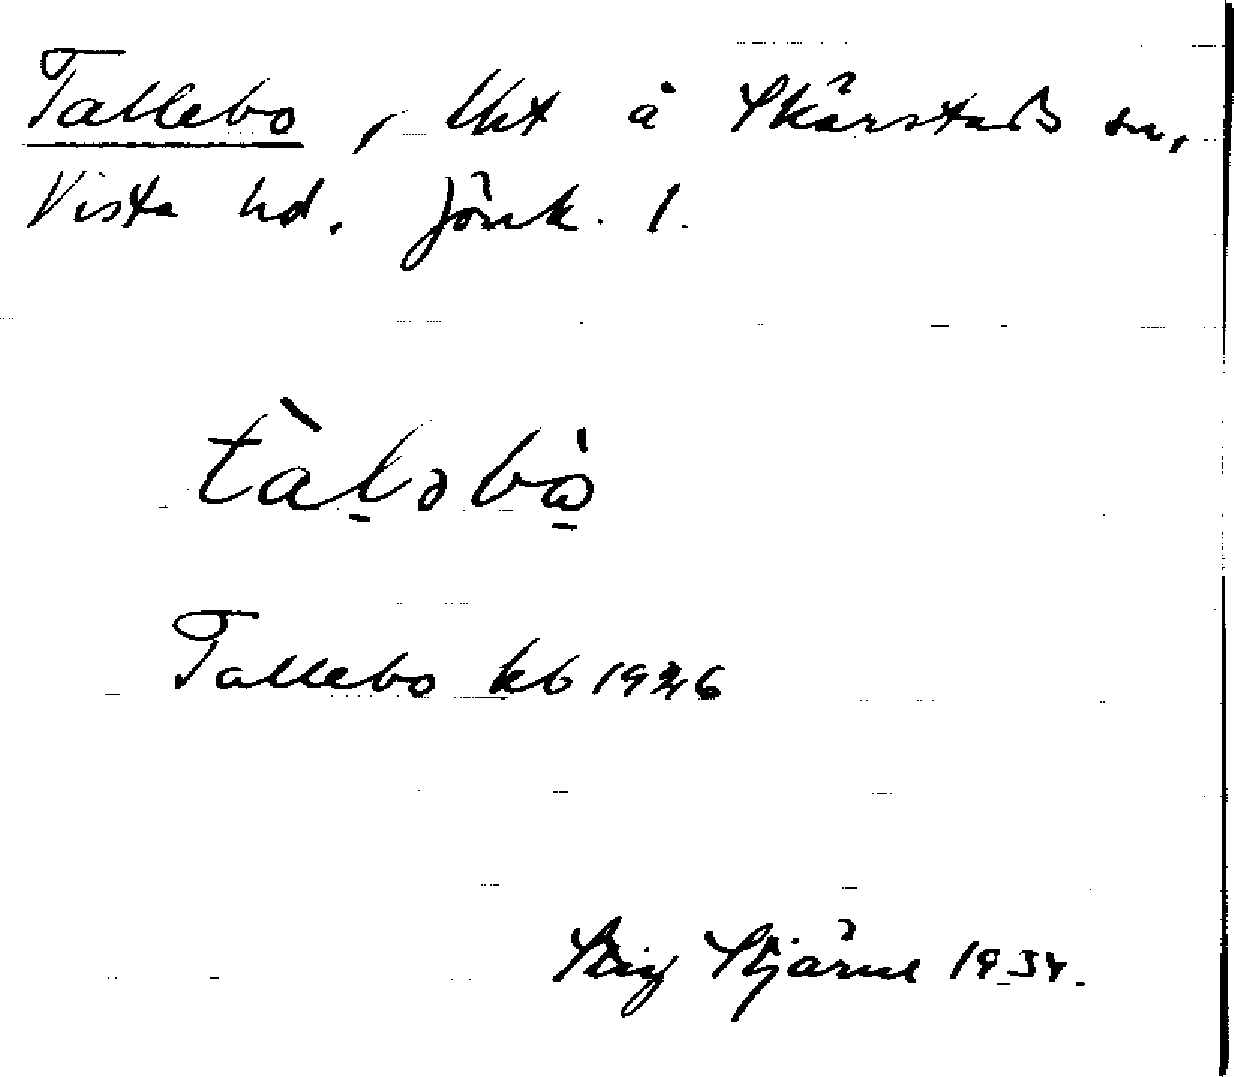 Tallebo, lht å Skärstads sn,
Vista hd. Jönk. l.
tàl̠əbo̠
Tallebo kb 1926
Stig Stjärne 1934.